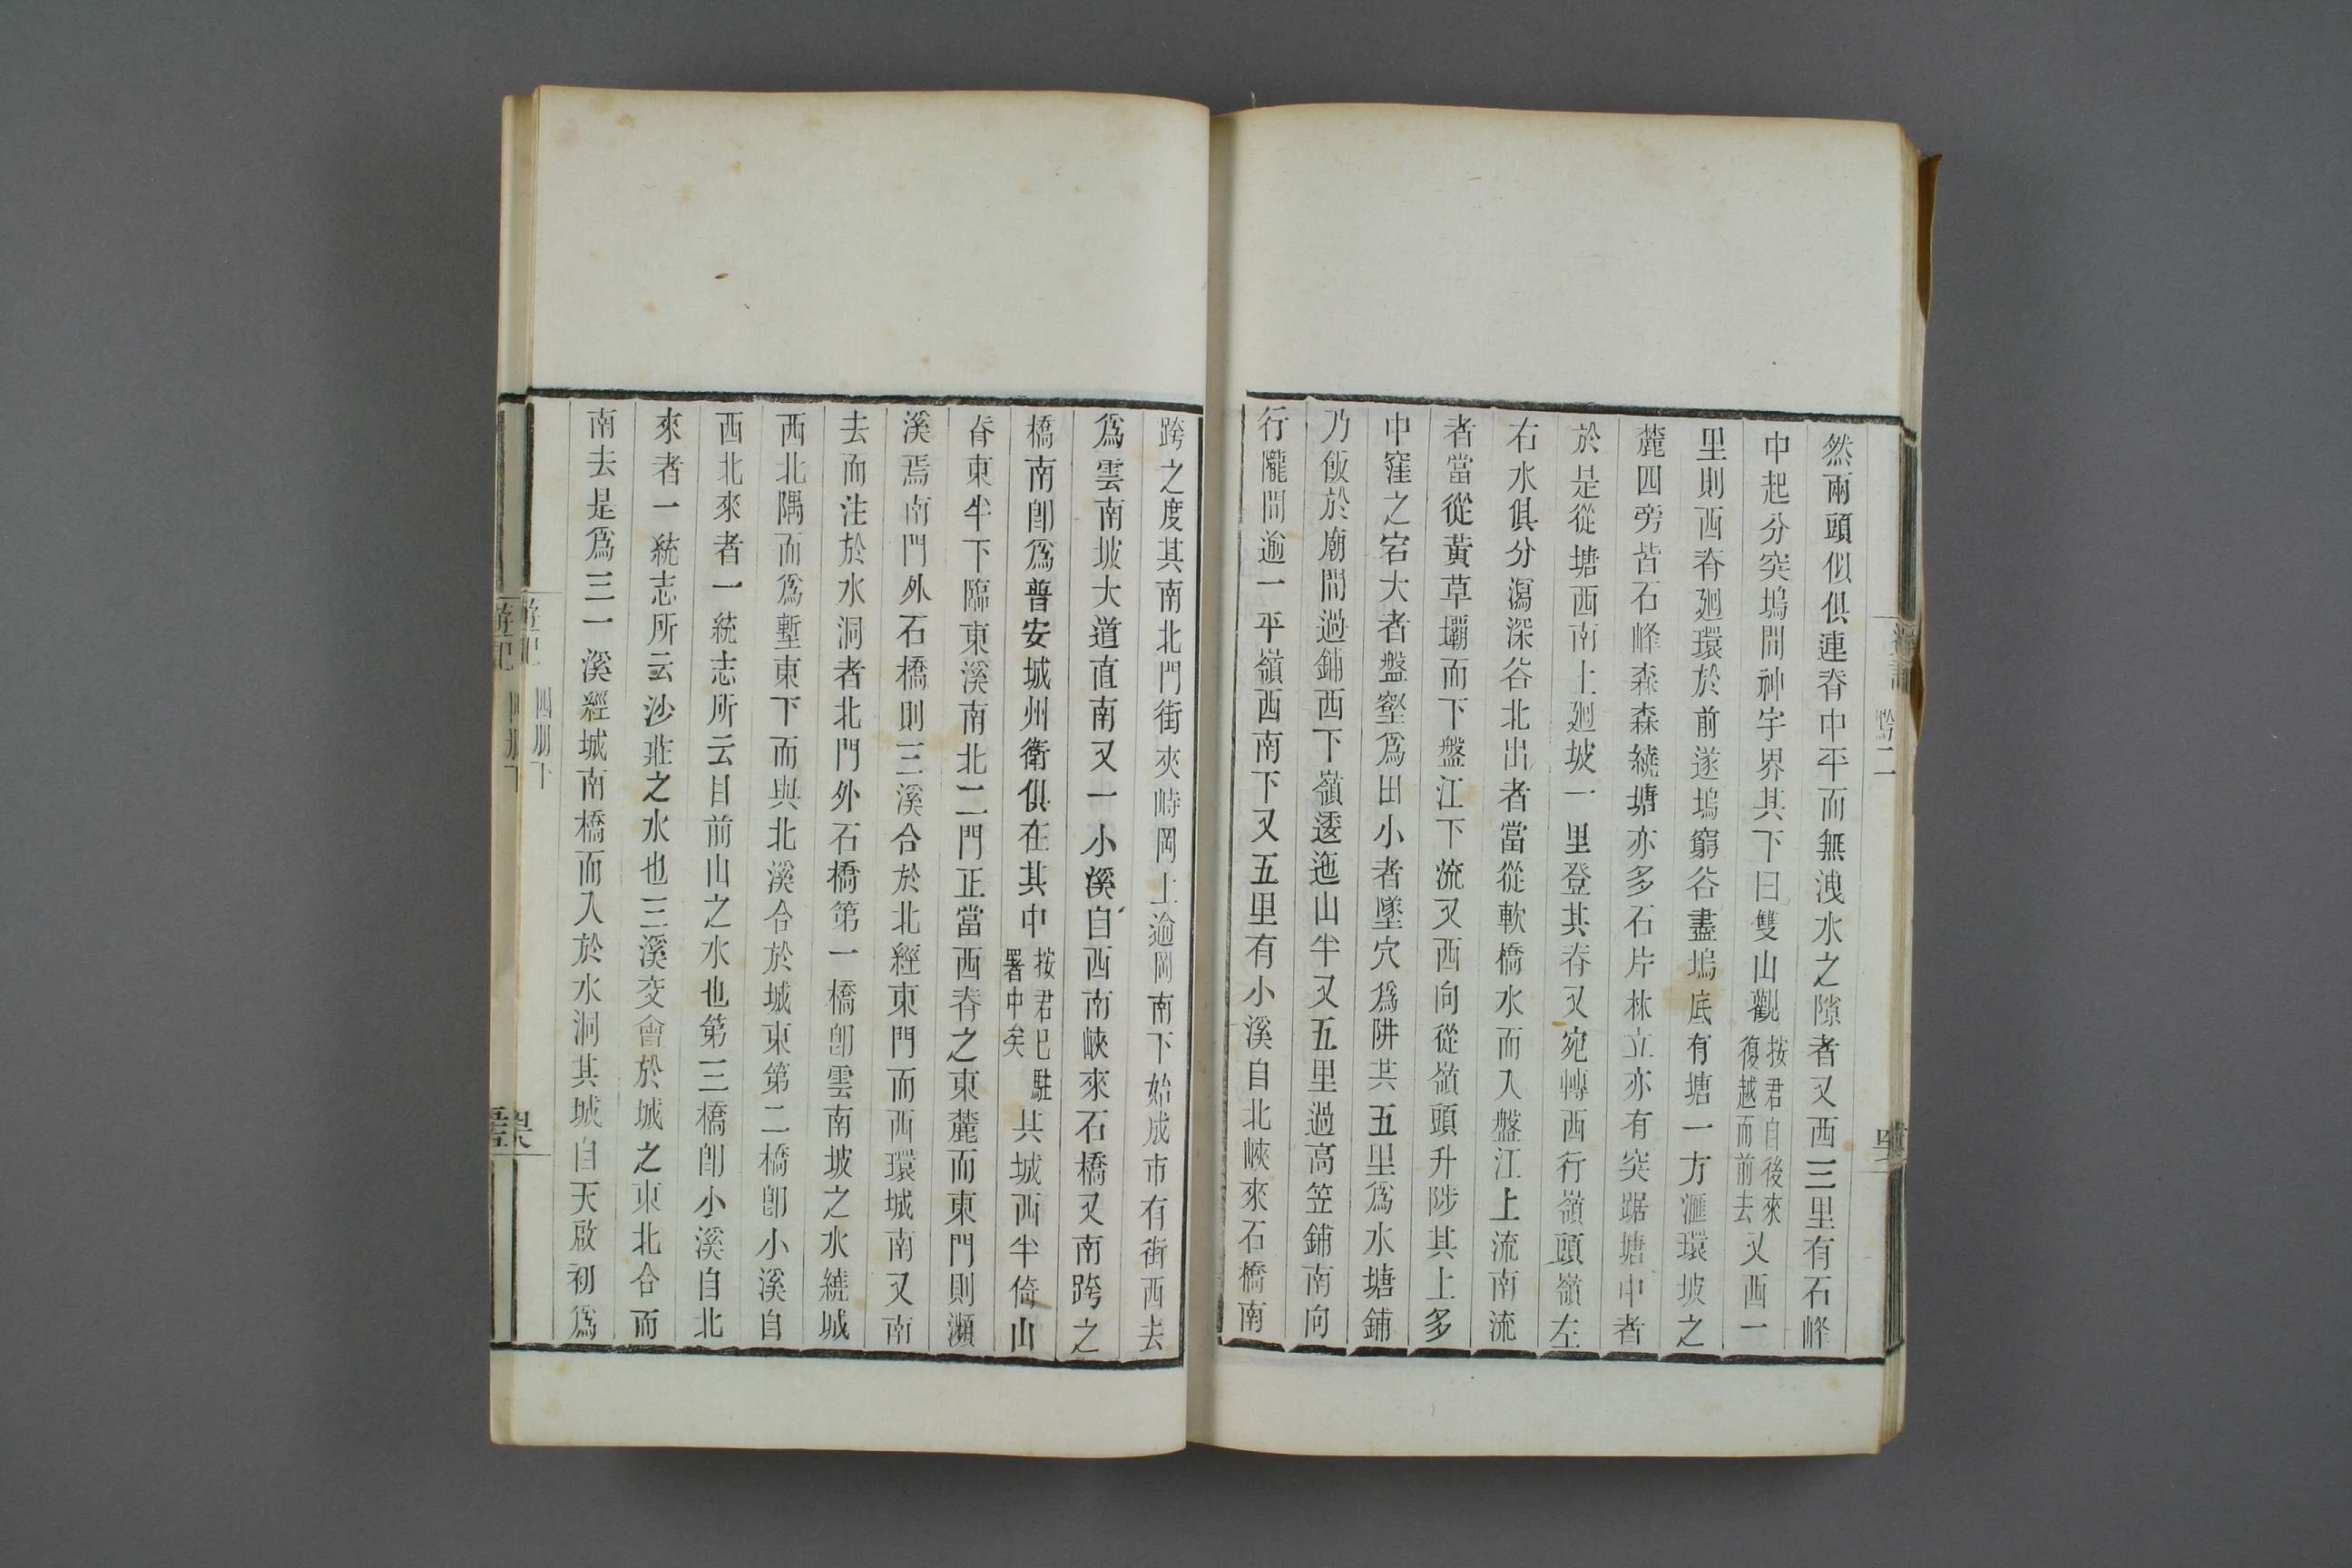 然兩頭似俱連脊中平而無洩水之隙者又西三里有石峰
中起分突塢間神宇界其下曰雙山觀按君自後來復越而前去又西一
里則西脊廻環於前遂塢窮谷盡塢底有塘一方滙環坡之
麓四旁皆石峰森森繞塘亦多石片林立亦有突踞塘中者
於是從塘西南上廻坡一里登其脊又宛轉西行嶺頭嶺左
右水俱分瀉深谷北出者當從軟橋水而入盤江上流南流
者當從黃草壩而下盤江下流又西向從嶺頭升陟其上多
中窪之宕大者盤壑爲田小者墜穴爲阱共五里爲水塘鋪
乃飯於廟間過鋪西下嶺逶迤山半又五里過高笠鋪南向
行隴間逾一平嶺西南下又五里有小溪自北峽來石橋南
跨之度其南北門街夾峙岡上逾岡南下始成市有街西去
爲雲南坡大道直南又一小溪自西南峽來石橋又南跨之
橋南卽爲普安城州衛俱在其中按君已駐署中矣其城西半倚山
脊東半下臨東溪南北二門正當西脊之東麓而東門則瀕
溪焉南門外石橋則三溪合於北經東門而西環城南又南
去而注於水洞者北門外石橋第一橋卽雲南坡之水繞城
西北隅而爲塹東下而與北溪合於城東第二橋卽小溪自
西北來者一統志所云目前山之水也第三橋卽小溪自北
來者一統志所云沙莊之水也三溪交會於城之東北合而
南去是爲三一溪經城南橋而入於水洞其城自天啟初爲
黔二
四册下